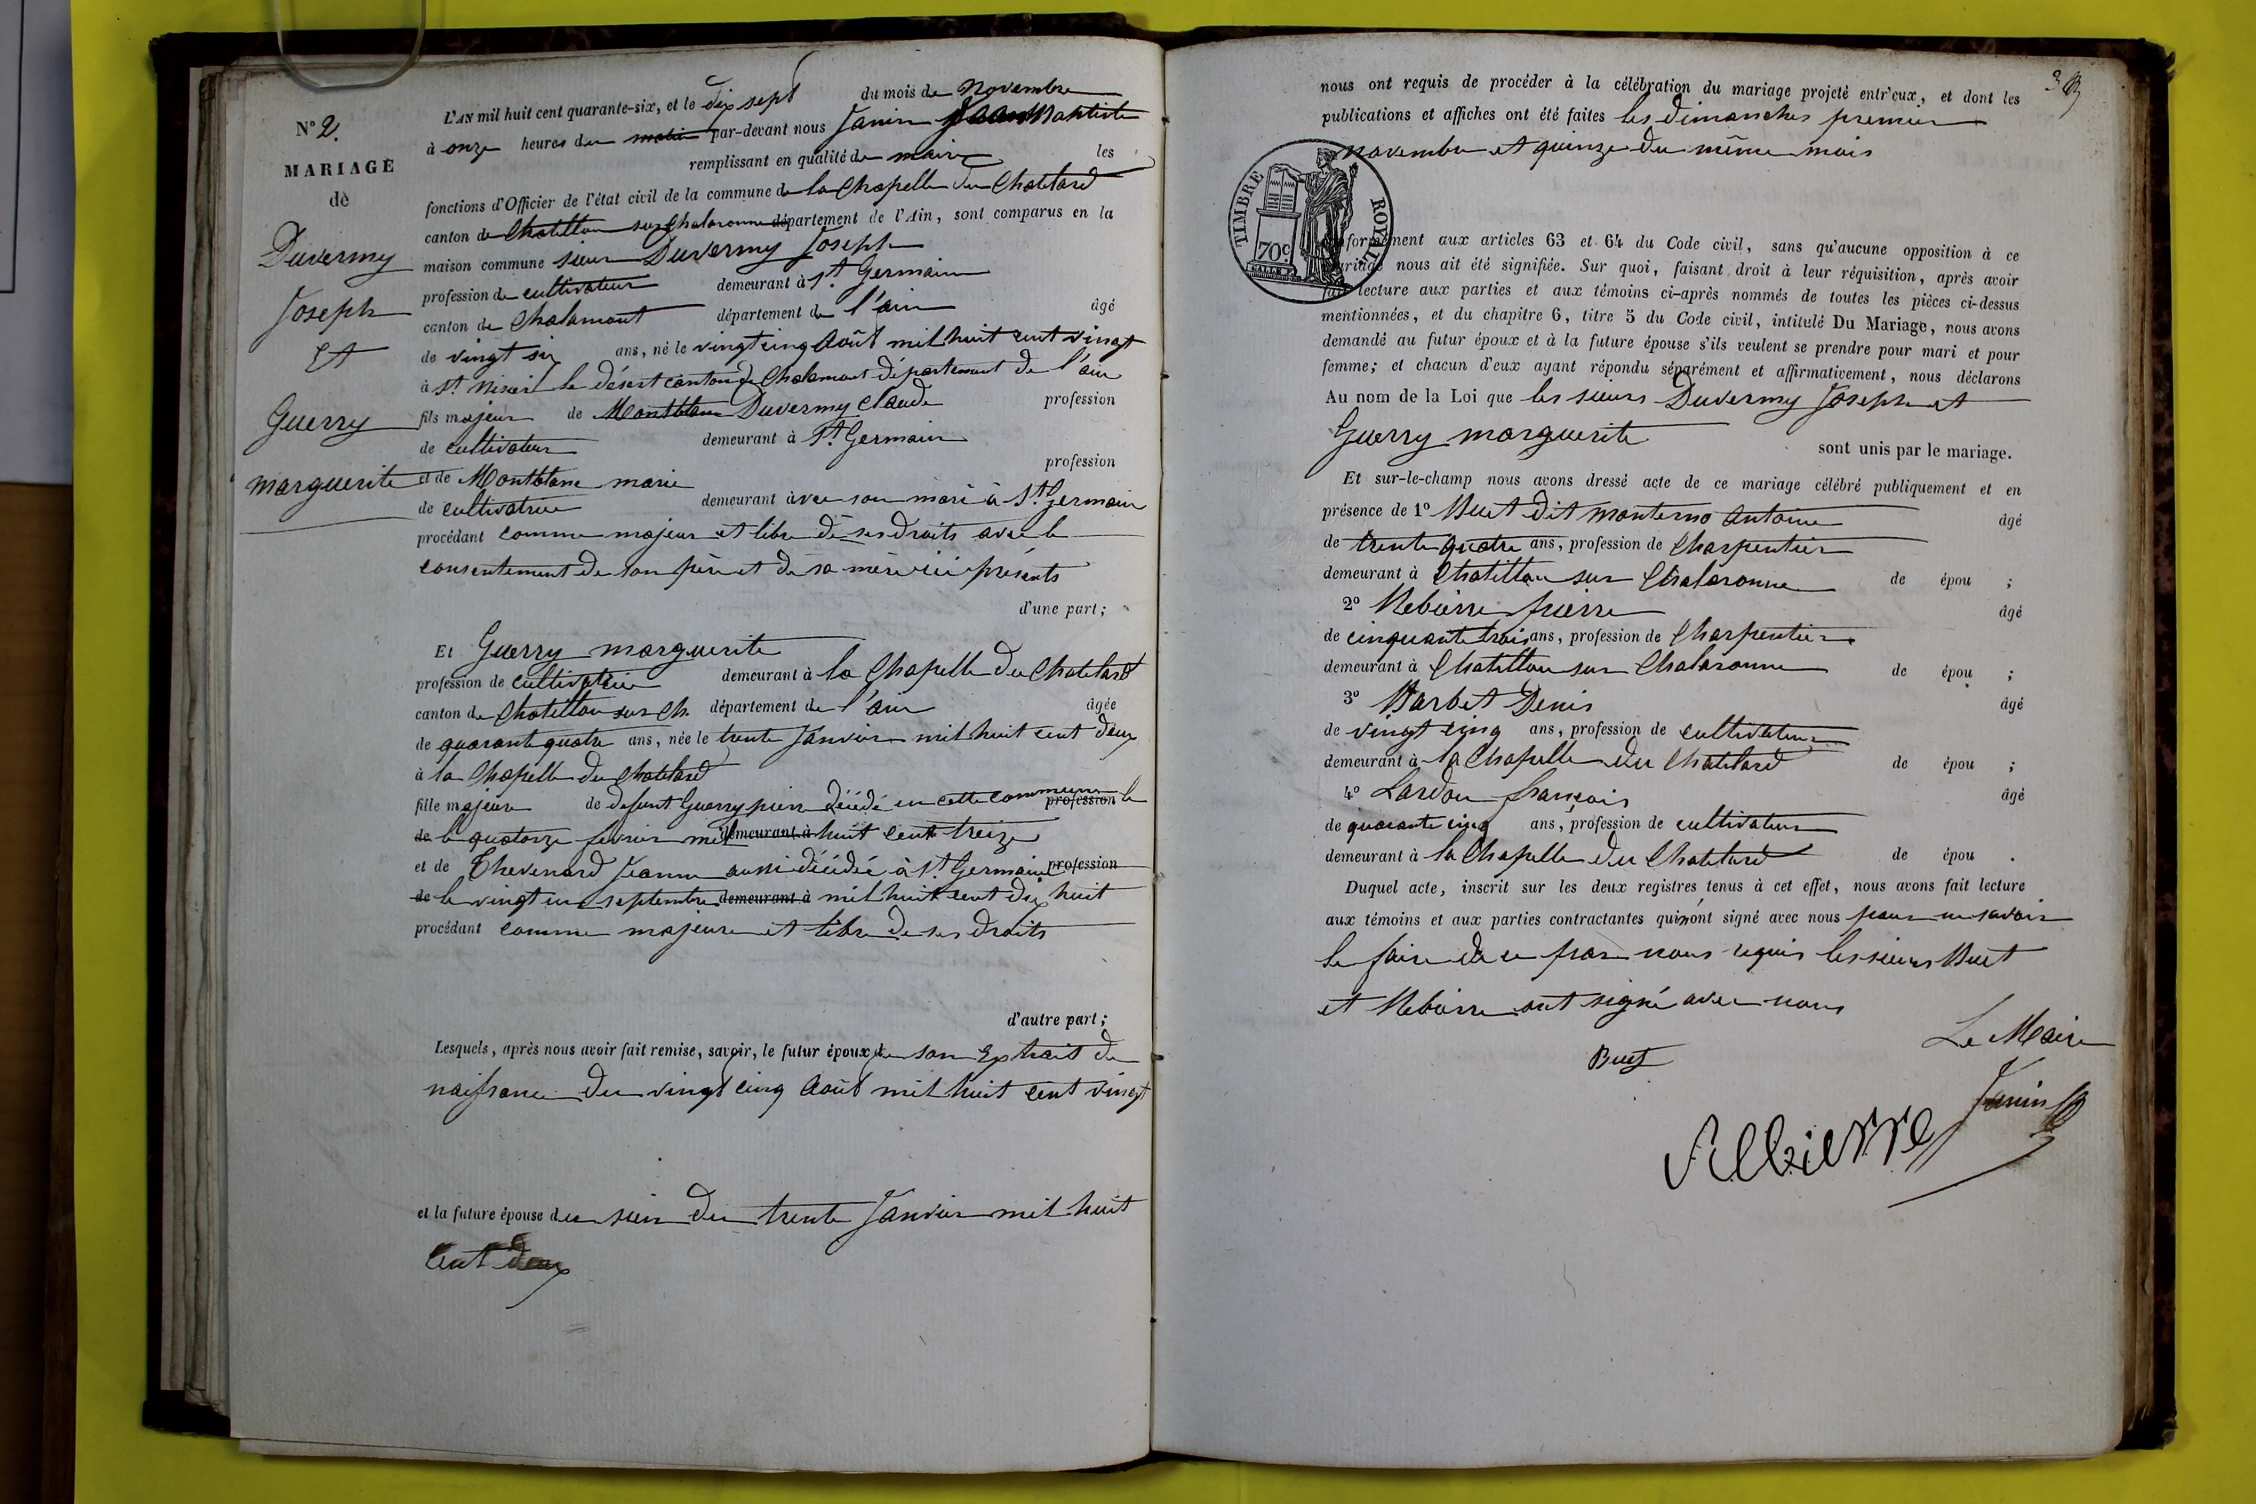 N° 2.
MARIAGE
de
Duvermy
Joseph
Et
Guerry
marguerite
L'AN mil huit cent quarante-six, et le dix sept du mois de novembre
à onze heures du matin par-devant nous Janin Jean Baptiste
remplissant en qualité de maire les
fonctions d'Officier de l'état civil de la commune de la Chapelle du Chatelard
canton de Chatillon sur Chalaronne département de l'Ain, sont comparus en la
maison commune sieur Duvermy Joseph
profession de cultivateur demeurant à St. Germain
canton de Chalamont département de l'ain âgé
de vingt six ans, né le vingt cinq Août mil huit cent vingt
à St. Nisier le désert canton de Chalamont département de l'ain
fils majeur de Montblanc Duvermy Claude profession
de cultivateur demeurant à St. Germain
et de Montblanc marie profession
de cultivatrice demeurant avec son mari à St. Germain
procédant comme majeur et libre de ses droits avec le
consentement de son père et de sa mère ici présents
d'une part;
Et Guerry marguerite
profession de cultivatrice demeurant à la Chapelle du Chatelard
canton de Chatillon sur Ch. département de l'ain âgée
de quarante quatre ans, née le trente Janvier mil huit cent deux
à la Chapelle du Chatelard
fille majeure de defunt Guerry pierre décédé en cette commune profession le
de le quatorze fevrier mil demeurant à huit cent treize
et de Thevenard Jeanne aussi décédée à St. Germain profession
de le vingt un septembre demeurant à mil huit cent dix huit
procédant comme majeure et libre de ses droits
d'autre part;
Lesquels, après nous avoir fait remise, savoir, le futur époux de son Extrait de
naissance du vingt cinq Août mil huit cent vingt
et la future épouse du sien du trente Janvier mil huit
Cent deux
nous ont requis de procéder à la célébration du mariage projeté entr'eux, et dont les
publications et affiches ont été faites les dimanches premier
novembre et quinze du même mois
TIMBRE ROYAL
70c
conformément aux articles 63 et 64 du Code civil, sans qu'aucune opposition à ce
mariage nous ait été signifiée. Sur quoi, faisant droit à leur réquisition, après avoir
fait lecture aux parties et aux témoins ci-après nommés de toutes les pièces ci-dessus
mentionnées, et du chapitre 6, titre 5 du Code civil, intitulé Du Mariage, nous avons
demandé au futur époux et à la future épouse s'ils veulent se prendre pour mari et pour
femme; et chacun d'eux ayant répondu séparément et affirmativement, nous déclarons
Au nom de la Loi que les sieurs Duvermy Joseph et
Guerry marguerite sont unis par le mariage.
Et sur-le-champ nous avons dressé acte de ce mariage célébré publiquement et en
présence de 1° Buet dit monterno Antoine âgé
de trente quatre ans, profession de Charpentier
demeurant à Chatillon sur Chalaronne de épou ;
2° Rebierre pierre âgé
de cinquante trois ans, profession de Charpentier
demeurant à Chatillon sur Chalaronne de épou ;
3° Barbet Denis âgé
de vingt cinq ans, profession de cultivateur
demeurant à la Chapelle du Chatelard de épou ;
4° Lardon françois âgé
de quarante cinq ans, profession de cultivateur
demeurant à la Chapelle du Chatelard de épou .
Duquel acte, inscrit sur les deux registres tenus à cet effet, nous avons fait lecture
aux témoins et aux parties contractantes qui n'ont signé avec nous pour ne savoir
le faire de ce par nous requis les sieurs Buet
et Rebierre ont signé avec nous
Le Maire
Buet
Janin
Rebierre